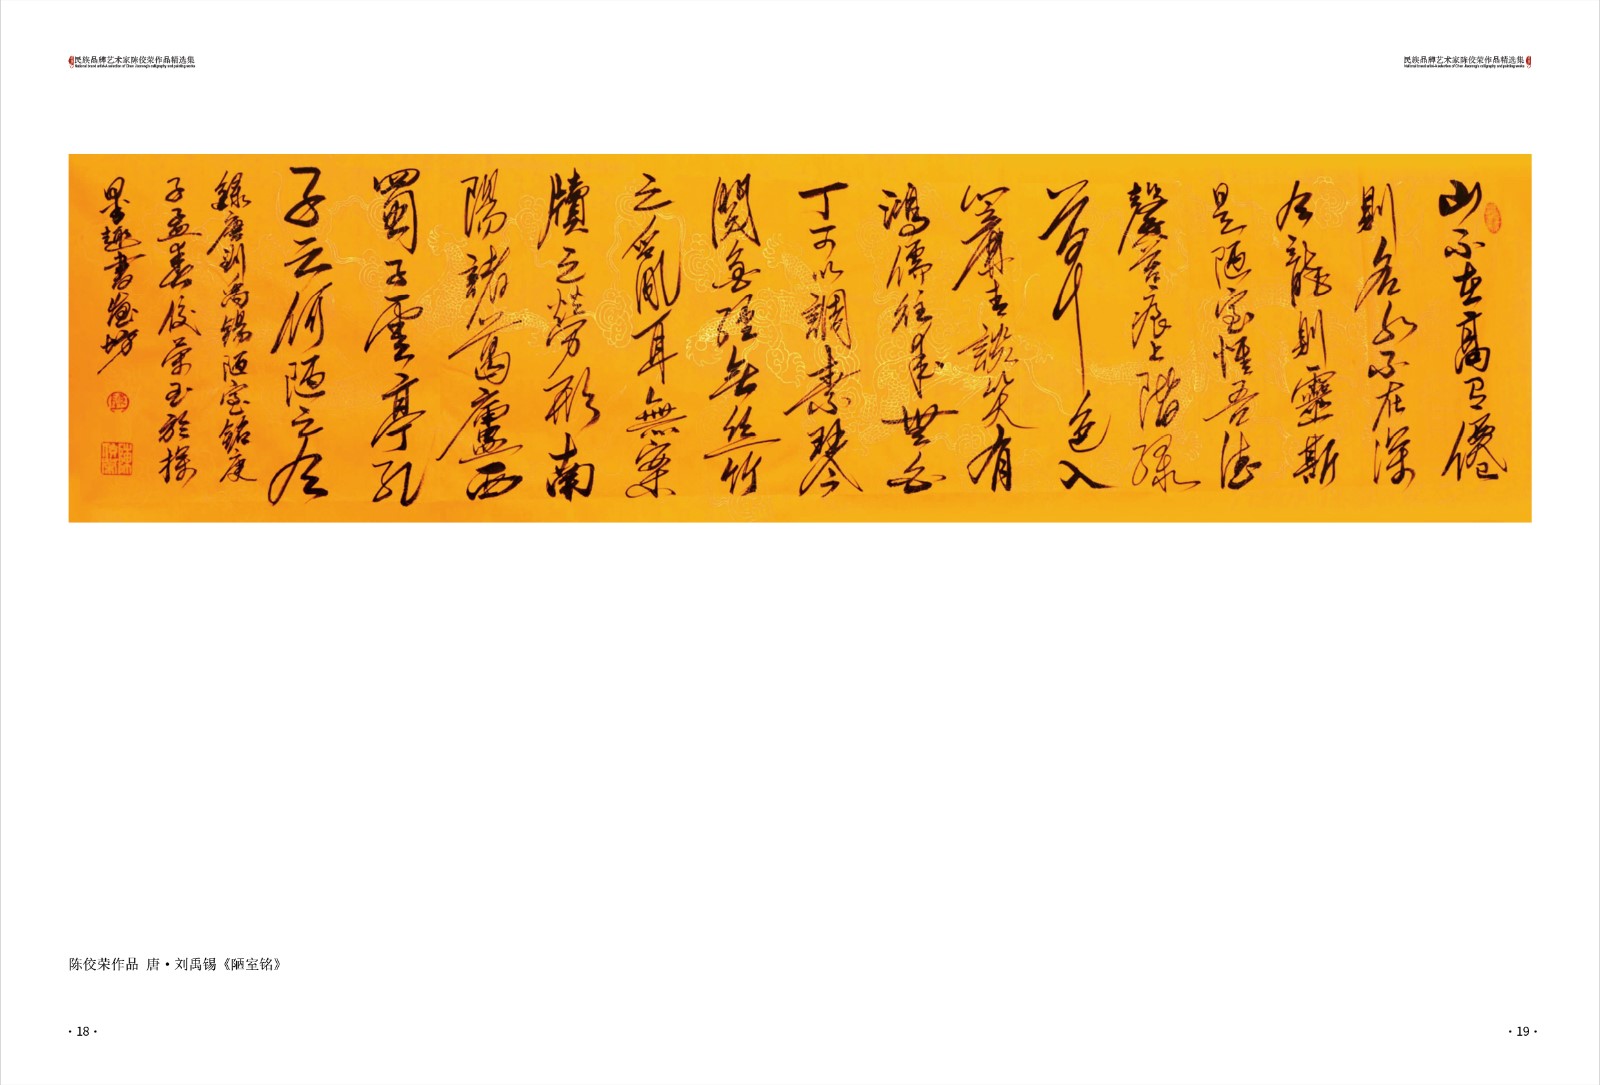 民族品牌艺术家陈佼荣作品精选集
National brand artist-A selection of Chen Jiaorong's calligraphy and painting works
民族品牌艺术家陈佼荣作品精选集
National brand artist-A selection of Chen Jiaorong's calligraphy and painting works
山不在高有僊
則名水不在深
有龍則靈斯
是陋室惟吾德
馨苔痕上階綠
草色入
簾青談笑有
鴻儒往來無白
丁可以調素琴
閱金經無絲竹
之亂耳無案
牘之勞形南
陽諸葛廬西
蜀子雲亭孔
子云何陋之有
錄唐劉禹錫陋室銘庚
子孟春佼榮於
墨趣書畫坊
陈佼荣作品 唐·刘禹锡《陋室铭》
·18·
·19·